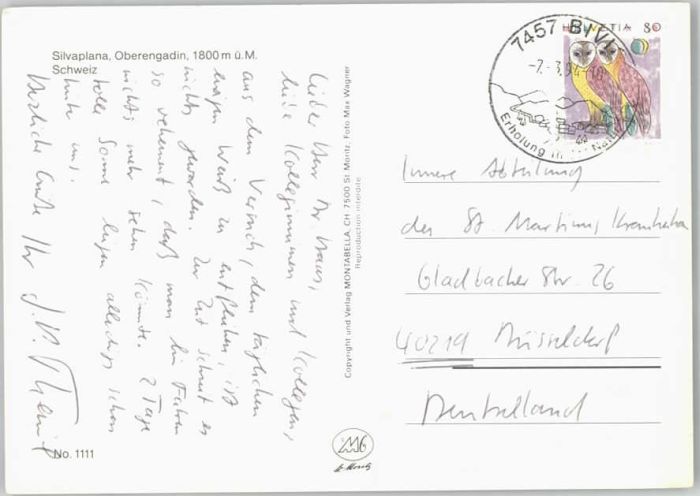 Silvaplana, Oberengadin, 1800 m ü.M.
Schweiz
Lieber Herr Dr. Haus,
liebe Kolleginnen und Kollegen,
aus dem Versuch, dem täglichen
Weiß zu entfliehen, ist
nichts geworden. Zur Zeit schneit es
so vehement, daß man beim Fahren
nichts mehr sehen könnte. 2 Tage
tolle Sonne liegen allerdings schon
hinter uns.
Herzliche Grüße Ihr
No. 1111
Copyright und Verlag MONTABELLA, CH 7500 St. Moritz, Foto Max Wagner
Reproduction interdite
MG
St. Moritz
7457 BIVIO
-7.-3.94-18
Erholung in der Natur
HELVETIA 80
Innere Abteilung
des St. Martinus Krankenhaus
Gladbacher Str. 26
40219 Düsseldorf
Deutschland